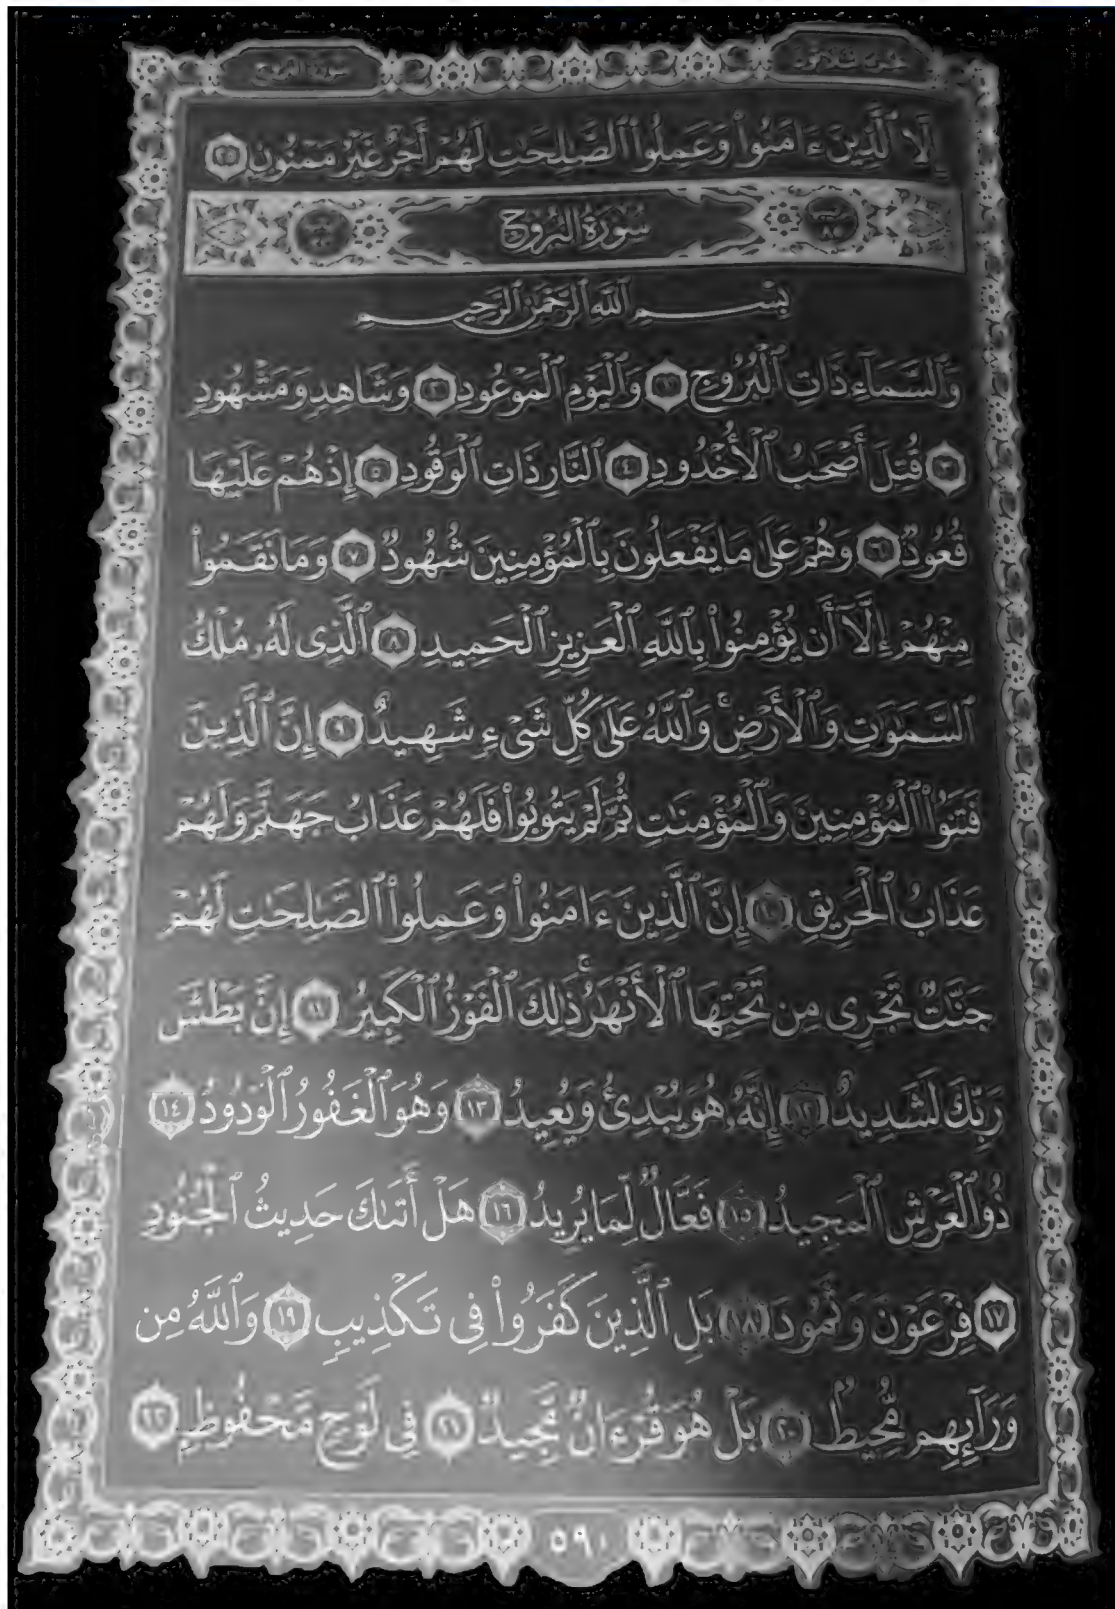 سورة البروج
إِلَّا ٱلَّذِينَ ءَامَنُوا۟ وَعَمِلُوا۟ ٱلصَّٰلِحَٰتِ لَهُمْ أَجْرٌ غَيْرُ مَمْنُونٍ ٢٥
سُورَةُ البُرُوجِ
بِسْمِ ٱللَّهِ ٱلرَّحْمَٰنِ ٱلرَّحِيمِ
وَٱلسَّمَآءِ ذَاتِ ٱلْبُرُوجِ ١ وَٱلْيَوْمِ ٱلْمَوْعُودِ ٢ وَشَاهِدٍ وَمَشْهُودٍ
٣ قُتِلَ أَصْحَٰبُ ٱلْأُخْدُودِ ٤ ٱلنَّارِ ذَاتِ ٱلْوَقُودِ ٥ إِذْ هُمْ عَلَيْهَا
قُعُودٌ ٦ وَهُمْ عَلَىٰ مَا يَفْعَلُونَ بِٱلْمُؤْمِنِينَ شُهُودٌ ٧ وَمَا نَقَمُوا۟
مِنْهُمْ إِلَّآ أَن يُؤْمِنُوا۟ بِٱللَّهِ ٱلْعَزِيزِ ٱلْحَمِيدِ ٨ ٱلَّذِى لَهُۥ مُلْكُ
ٱلسَّمَٰوَٰتِ وَٱلْأَرْضِ ۚ وَٱللَّهُ عَلَىٰ كُلِّ شَىْءٍ شَهِيدٌ ٩ إِنَّ ٱلَّذِينَ
فَتَنُوا۟ ٱلْمُؤْمِنِينَ وَٱلْمُؤْمِنَٰتِ ثُمَّ لَمْ يَتُوبُوا۟ فَلَهُمْ عَذَابُ جَهَنَّمَ وَلَهُمْ
عَذَابُ ٱلْحَرِيقِ ١٠ إِنَّ ٱلَّذِينَ ءَامَنُوا۟ وَعَمِلُوا۟ ٱلصَّٰلِحَٰتِ لَهُمْ
جَنَّٰتٌ تَجْرِى مِن تَحْتِهَا ٱلْأَنْهَٰرُ ۚ ذَٰلِكَ ٱلْفَوْزُ ٱلْكَبِيرُ ١١ إِنَّ بَطْشَ
رَبِّكَ لَشَدِيدٌ ١٢ إِنَّهُۥ هُوَ يُبْدِئُ وَيُعِيدُ ١٣ وَهُوَ ٱلْغَفُورُ ٱلْوَدُودُ ١٤
ذُو ٱلْعَرْشِ ٱلْمَجِيدُ ١٥ فَعَّالٌ لِّمَا يُرِيدُ ١٦ هَلْ أَتَىٰكَ حَدِيثُ ٱلْجُنُودِ
١٧ فِرْعَوْنَ وَثَمُودَ ١٨ بَلِ ٱلَّذِينَ كَفَرُوا۟ فِى تَكْذِيبٍ ١٩ وَٱللَّهُ مِن
وَرَآئِهِم مُّحِيطٌۢ ٢٠ بَلْ هُوَ قُرْءَانٌ مَّجِيدٌ ٢١ فِى لَوْحٍ مَّحْفُوظٍۭ ٢٢
٥٩٠